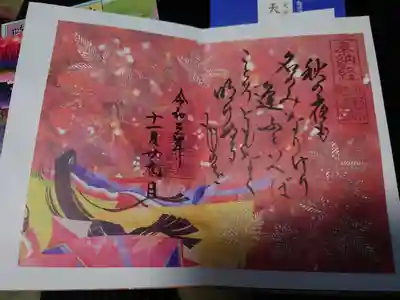 奉納経
秋の夜も
名のみなりけり
逢ふといへば
ことぞともなく
明けぬる
ものを
令和三年
十一月 日
天